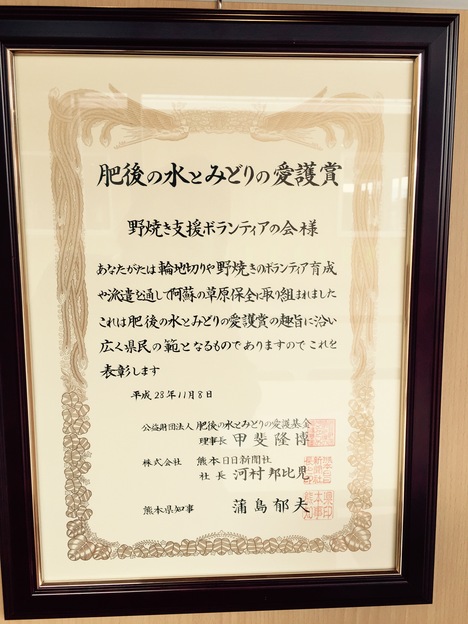 肥後の水とみどりの愛護賞
野焼き支援ボランティアの会様
あなたがたは輪地切りや野焼きのボランティア育成
や派遣を通して阿蘇の草原保全に取り組まれました
これは肥後の水とみどりの愛護賞の趣旨に沿い
広く県民の範となるものでありますのでこれを
表彰します
平成28年11月8日
公益財団法人 肥後の水とみどりの愛護基金
理事長 甲斐隆博
株式会社 熊本日日新聞社
社長 河村邦比児
熊本県知事 蒲島郁夫